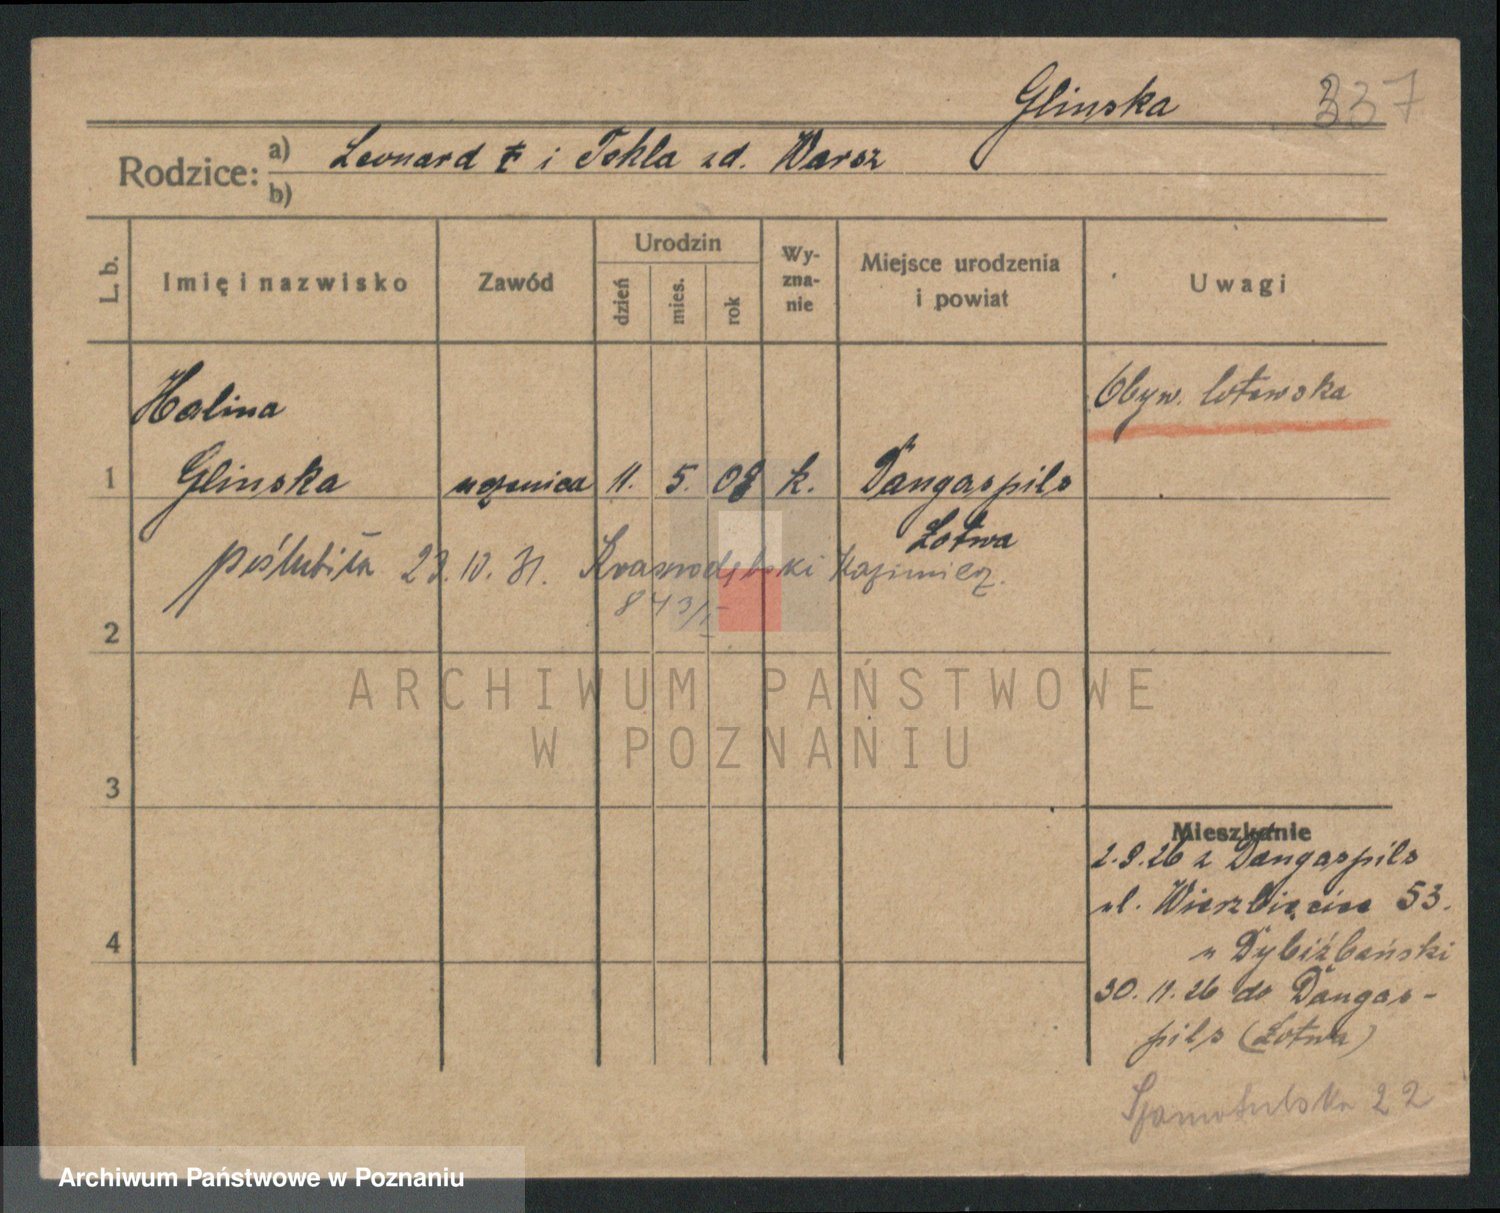 Glinska 337
Rodzice: a) Leonard i Tekla zd. Warsz
b)
L. b. Imię i nazwisko Zawód Urodzin dzień mies. rok Wy-zna-nie Miejsce urodzenia i powiat Uwagi
Halina
Obyw. łotewska
1 Glinska uczenica 11. 5. 08 k. Dangaspils
Łotwa
poślubiła 23.10.31. Krasnodębski Kazimierz.
843/I
2
ARCHIWUM PAŃSTWOWE
W POZNANIU
3
Mieszkanie
2.9.26 z Dangaspils
ul. Wierzbięcice 53.
u Dybiźbański
4
30.11.26 do Dangas-
pils (Łotwa)
Szamotulska 22
Archiwum Państwowe w Poznaniu